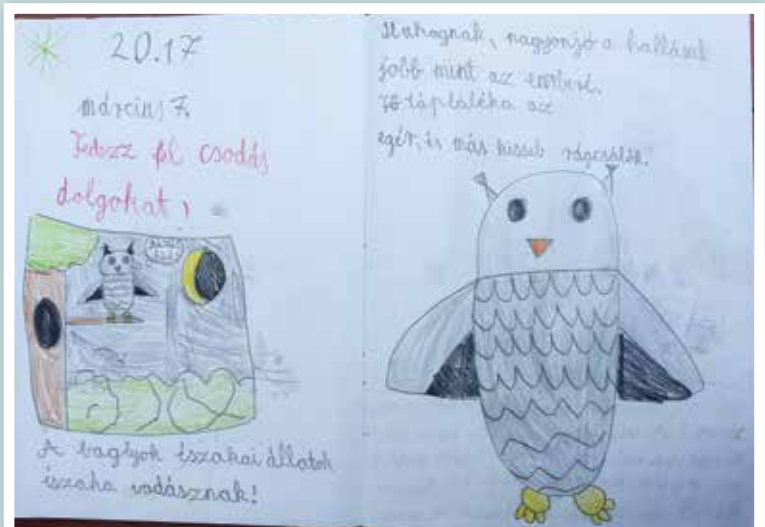 20.17
március 7.
Fedezz fel csodás
dolgokat,
A baglyok északai állatok
északa vadásznak!
Huhognak, nagyonjó a hallásuk
jobb mint az emberé.
Fő tápláléka az
egér, és más kissebb rágcsálók.